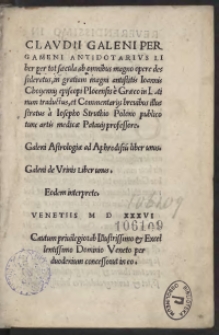 CLAVDII GALENI PER
GAMENI ANTIDOTARIVS LI
ber per tot sæcula ab omnibus magno opere des
sideratus, in gratiam magni antistitis Ioannis
episcopi Plocensis è Græco in Lati
num traductus, et Commentarijs breuibus illus
stratus à Iosepho Struthio Polono publico
tunc artis medicæ Patauij professore.
Galeni Astrologia ad Aphrodisiū liber unus.
Galeni de Vrinis Liber unus.
Eodem interprete.
106109
VENETIIS M D XXXVI
106109
Cautum priuilegio ab Illustrissimo & Excel
lentissimo Dominio Veneto per
duodenium concessum